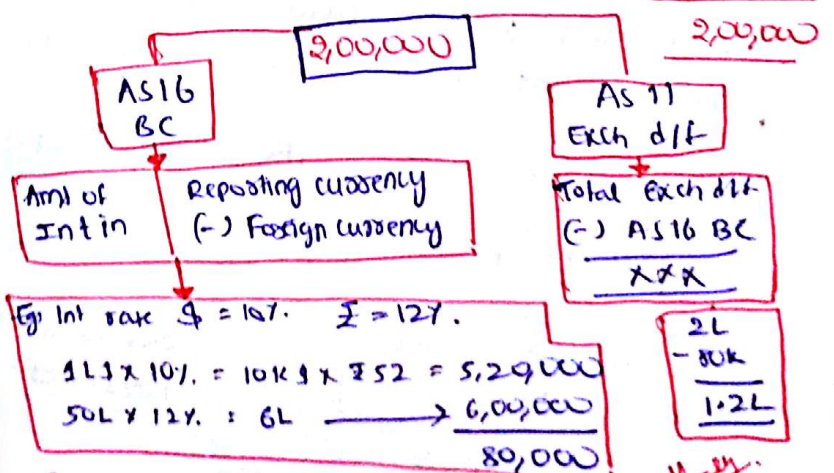 2,00,000
2,00,000
AS16
BC
AS 11
Exch dif
Amt of
Int in
Reporting currency
(-) Foreign currency
Total Exch dif
(-) AS16 BC
xxx
Eg: Int rate $ = 10%. ₹ = 12%.
1L$ x 10%. = 10K$ x ₹52 = 5,20,000
50L x 12%. : 6L → 6,00,000
80,000
2L
- 80K
1.2L